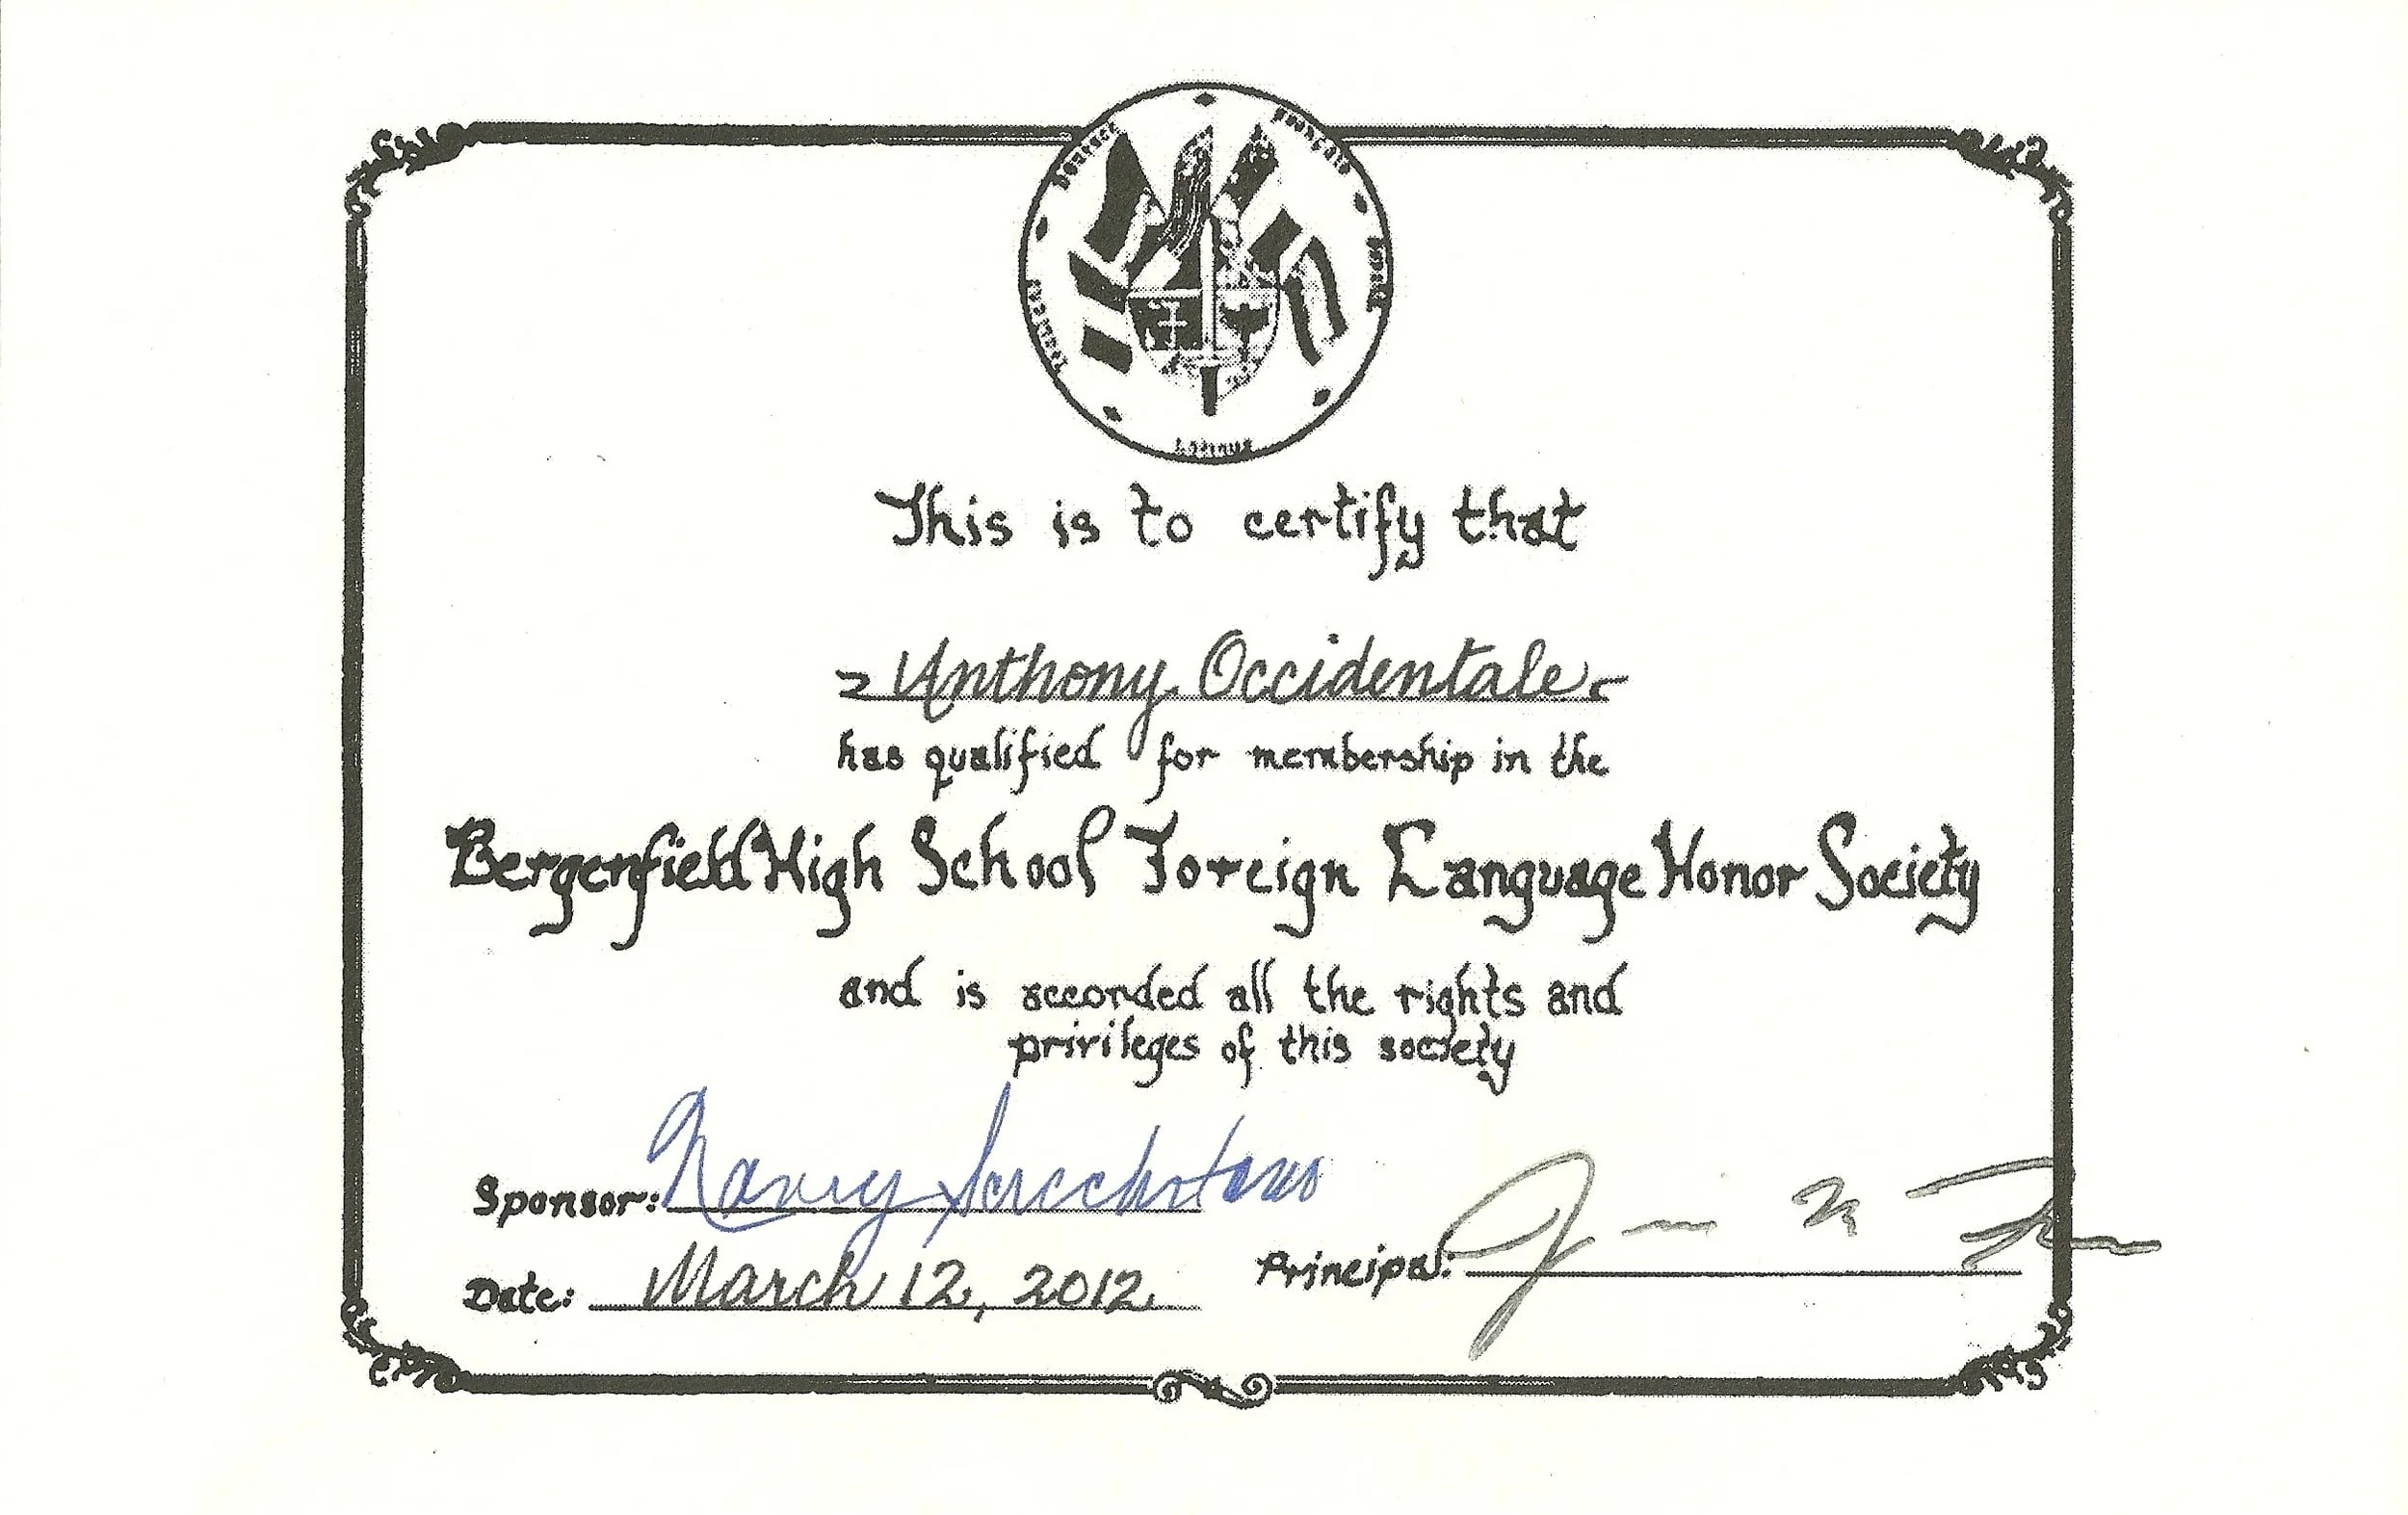 Deutsch
Français
Latinus
This is to certify that
Anthony Occidentale
has qualified for membership in the
Bergenfield High School Foreign Language Honor Society
and is accorded all the rights and
privileges of this society
Sponsor: Nancy
Date: March 12, 2012
Principal: